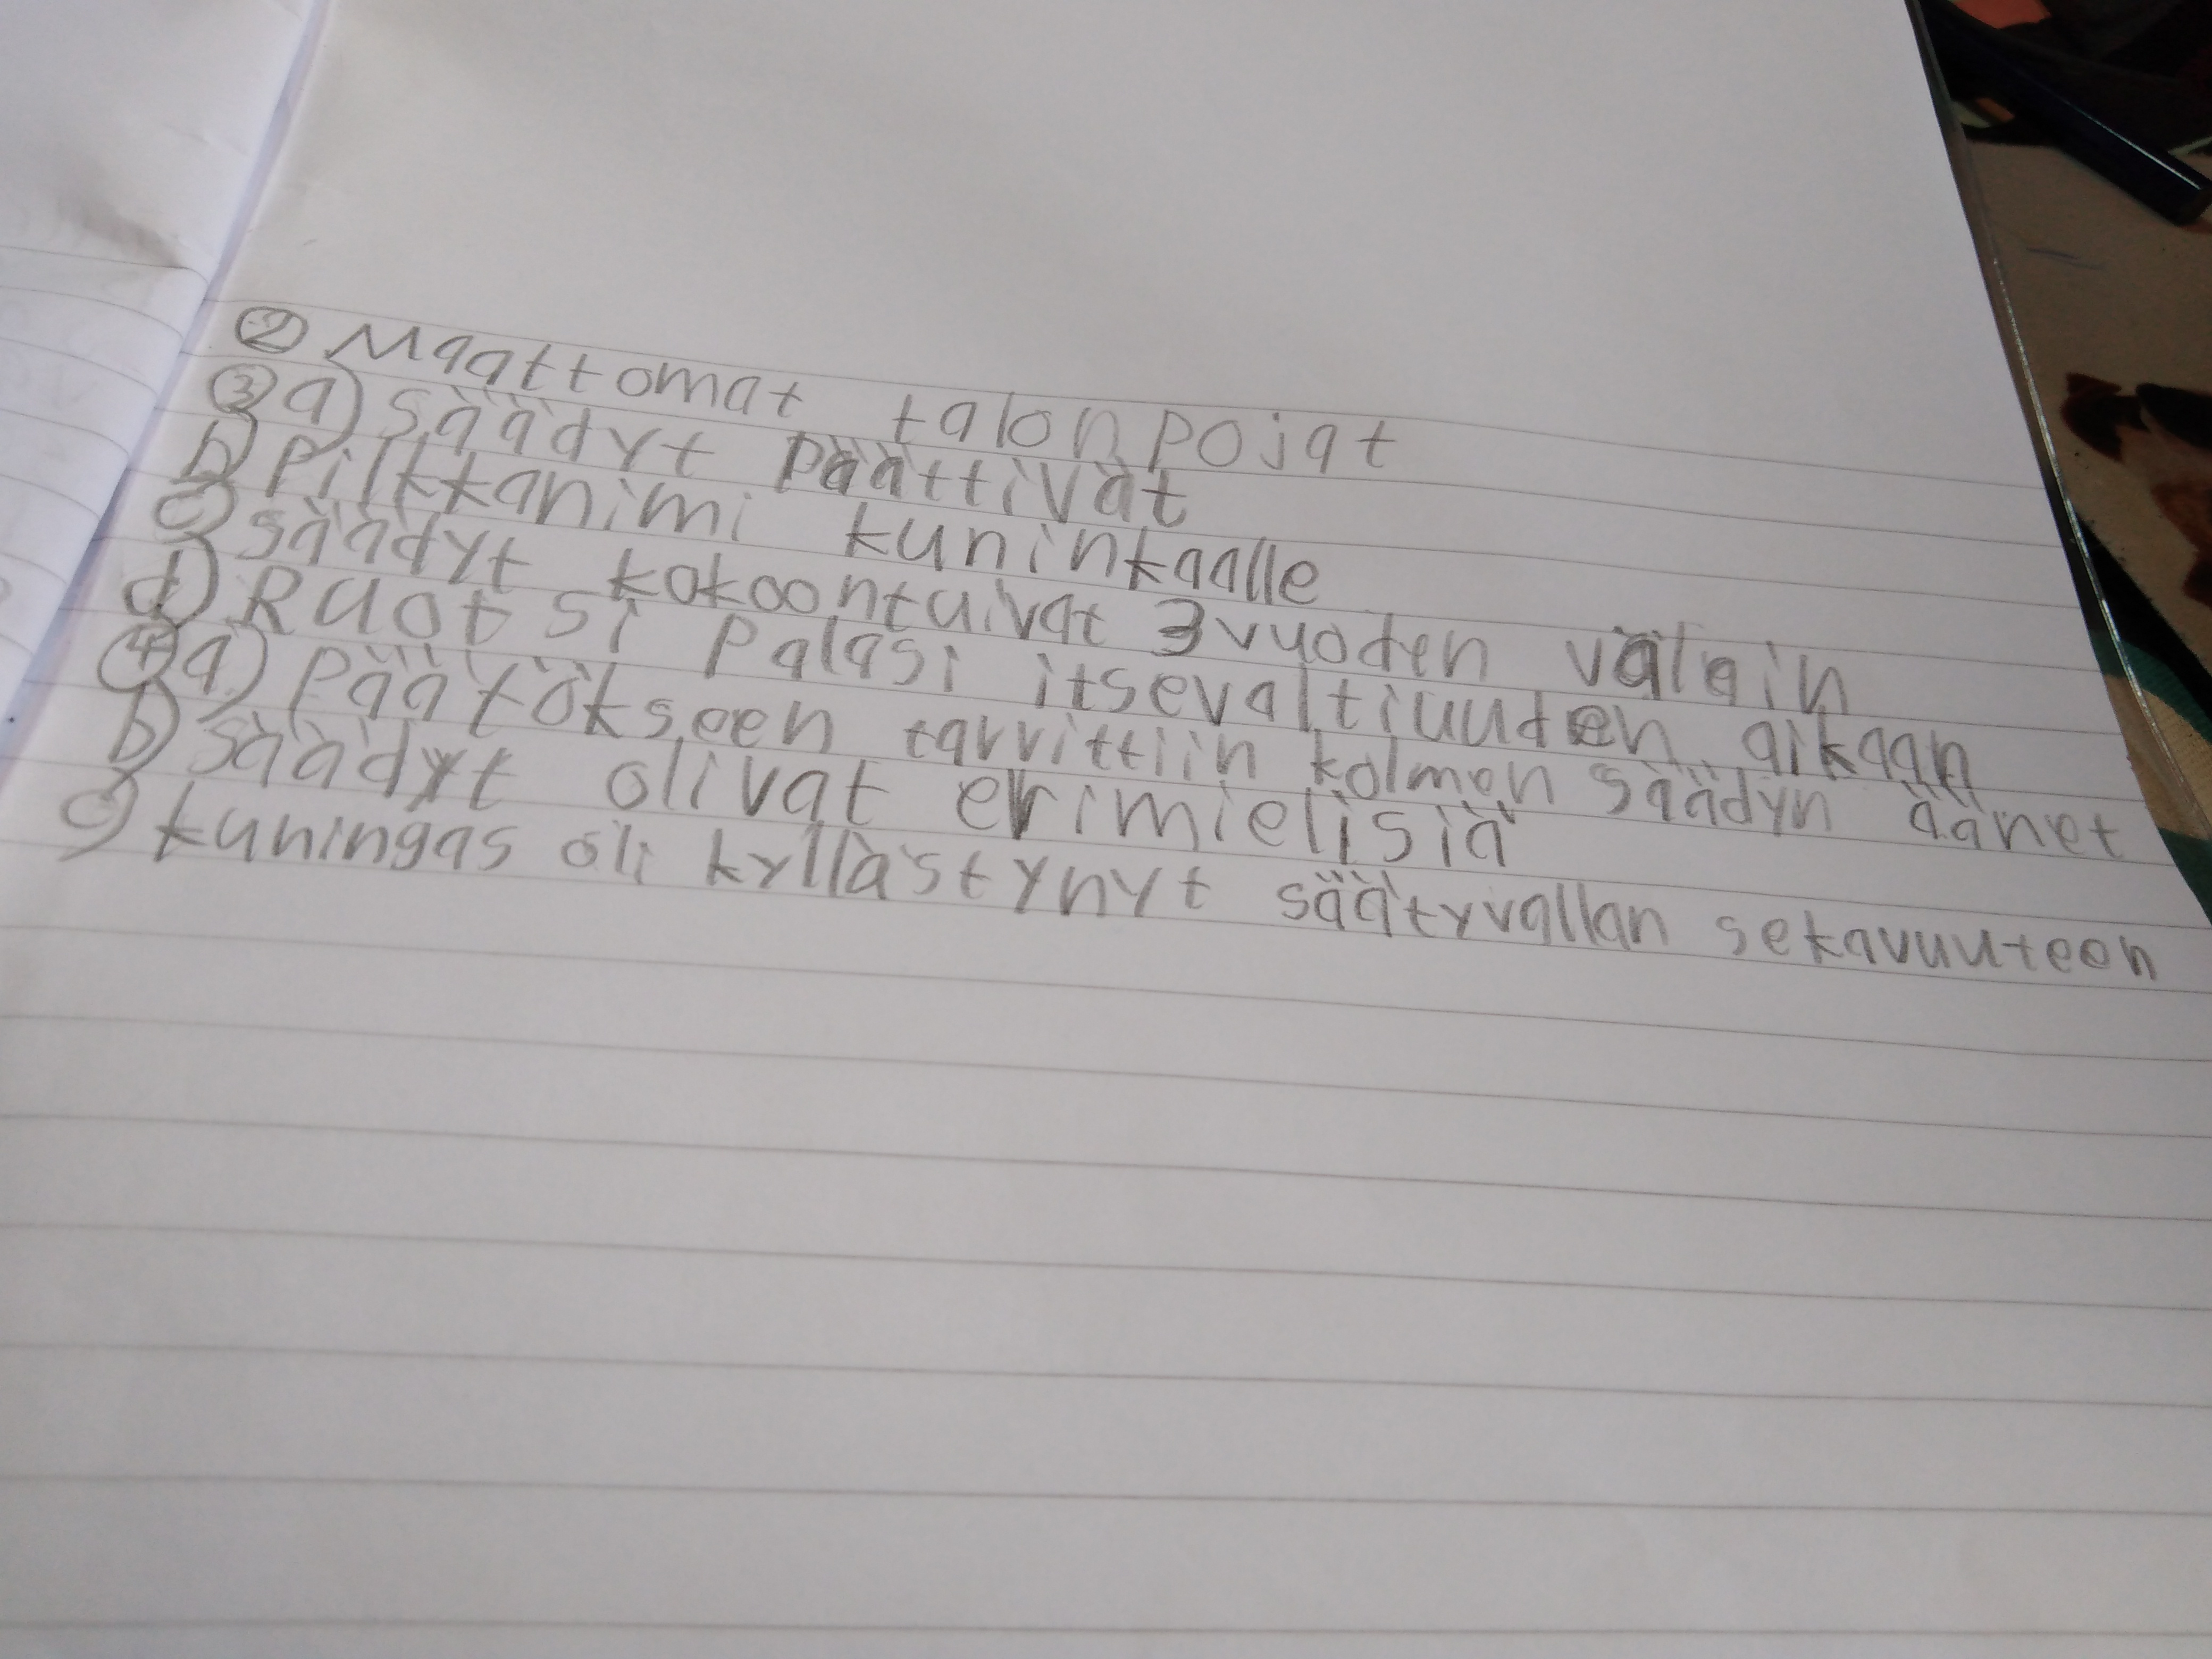 ② Maattomat talonpojat
③ a) säädyt päättivät
b) Pilkkanimi kuninkaalle
c) säädyt kokoontuivat 3 vuoden välein
d) Ruotsi palasi itsevaltiuuden aikaan
④ a) Päätökseen tarvittiin kolmen säädyn äänet
b) säädyt olivat erimielisiä
c) kuningas oli kyllästynyt säätyvallan sekavuuteen